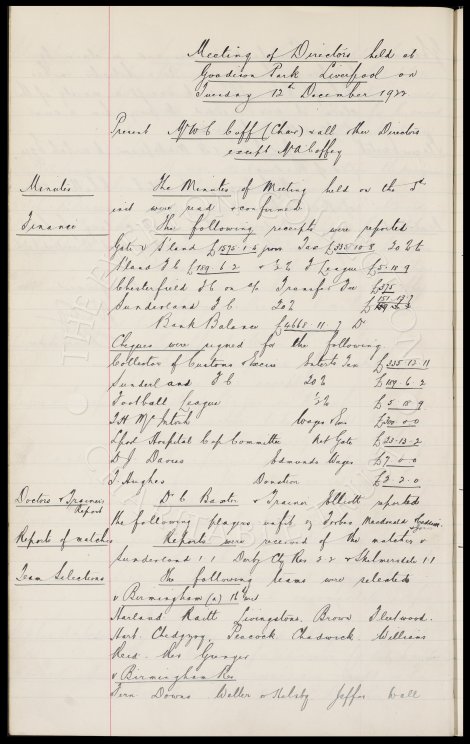 Meeting of Directors held at
Goodison Park Liverpool on
Tuesday 12th December 1922
Present Mr W C Cuff (Chair) & all other Directors
except Mr A Coffey
Minutes
The Minutes of Meeting held on the 5th
inst were read & confirmed
Finance
The following receipts were reported
Gate & Stand £1575.1.6 from Tax £335.10.8 20%
£159.6.2 & ½% F League £5.18.9
Chesterfield FC on a/c Transfer Fee £375
Sunderland FC 20%
Bank Balance £4665.11.7 D
Cheques were signed for the following
Collector of Customs & Excise Enterts Tax £335.13.11
Sunderland FC 20% £159.6.2
Football League ½% £5.18.9
T H McIntosh Wages & Exs £300.0.0
Lpool Hospital Cup Committee Net Gate £23.13.2
D J Davies Edmunds Wages £7.0.0
T. Hughes Donation £2.2.0
Doctors & Trainers
Report
Dr C Baxter & Trainer Elliott reported
the following players unfit Forbes Macdonald
Reports of matches
Reports were received of the matches v
Sunderland 1.1 Derby Cty Res 2.2 & Skelmersdale 1.1
Team Selections
The following teams were selected
v Birmingham (a) 16th inst
Harland Raitt Livingstone. Brown Fleetwood.
Hart. Chedgzoy. Peacock Chadwick Williams
Reid. Res Grenyer
v Birmingham Res
Fern Downs Weller Kelsby Jeffer Wall